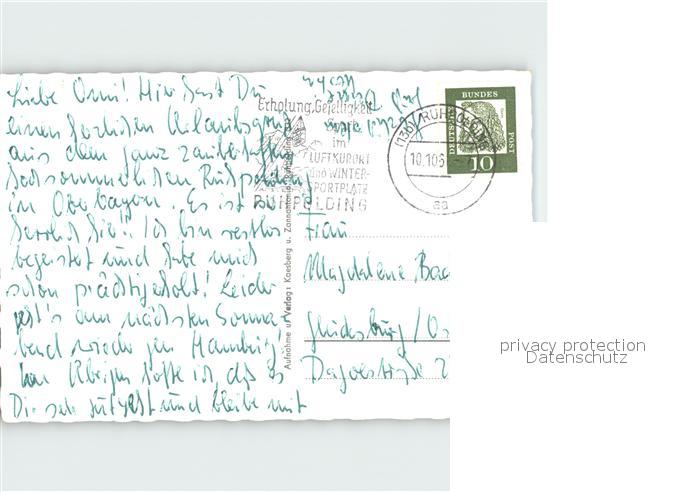 Liebe Omi! Hier hast Du
einen herzlichen Urlaubsgruß
aus dem ganz zauberhaften
hochsommerlichen Ruhpolding
in Oberbayern. Es ist so
herrlich hier! Ich bin restlos
begeistert und habe mich
schon prächtig erholt! Leider
geht's am nächsten Sonna-
bend wieder gen Hamburg!
Im Übrigen hoffe ich, daß es
Dir sehr gut geht und bleibe mit
Erholung, Geselligkeit
im
LUFTKURORT
und WINTER-
SPORTPLATZ
RUHPOLDING
(13b) RUHPOLDING
10.10.6
aa
DEUTSCHE
BUNDES
POST
10
Aufnahme u. Verlag: Kaesberg u.
Frau
Magdalene
Glücksburg/Os
2
privacy protection
Datenschutz